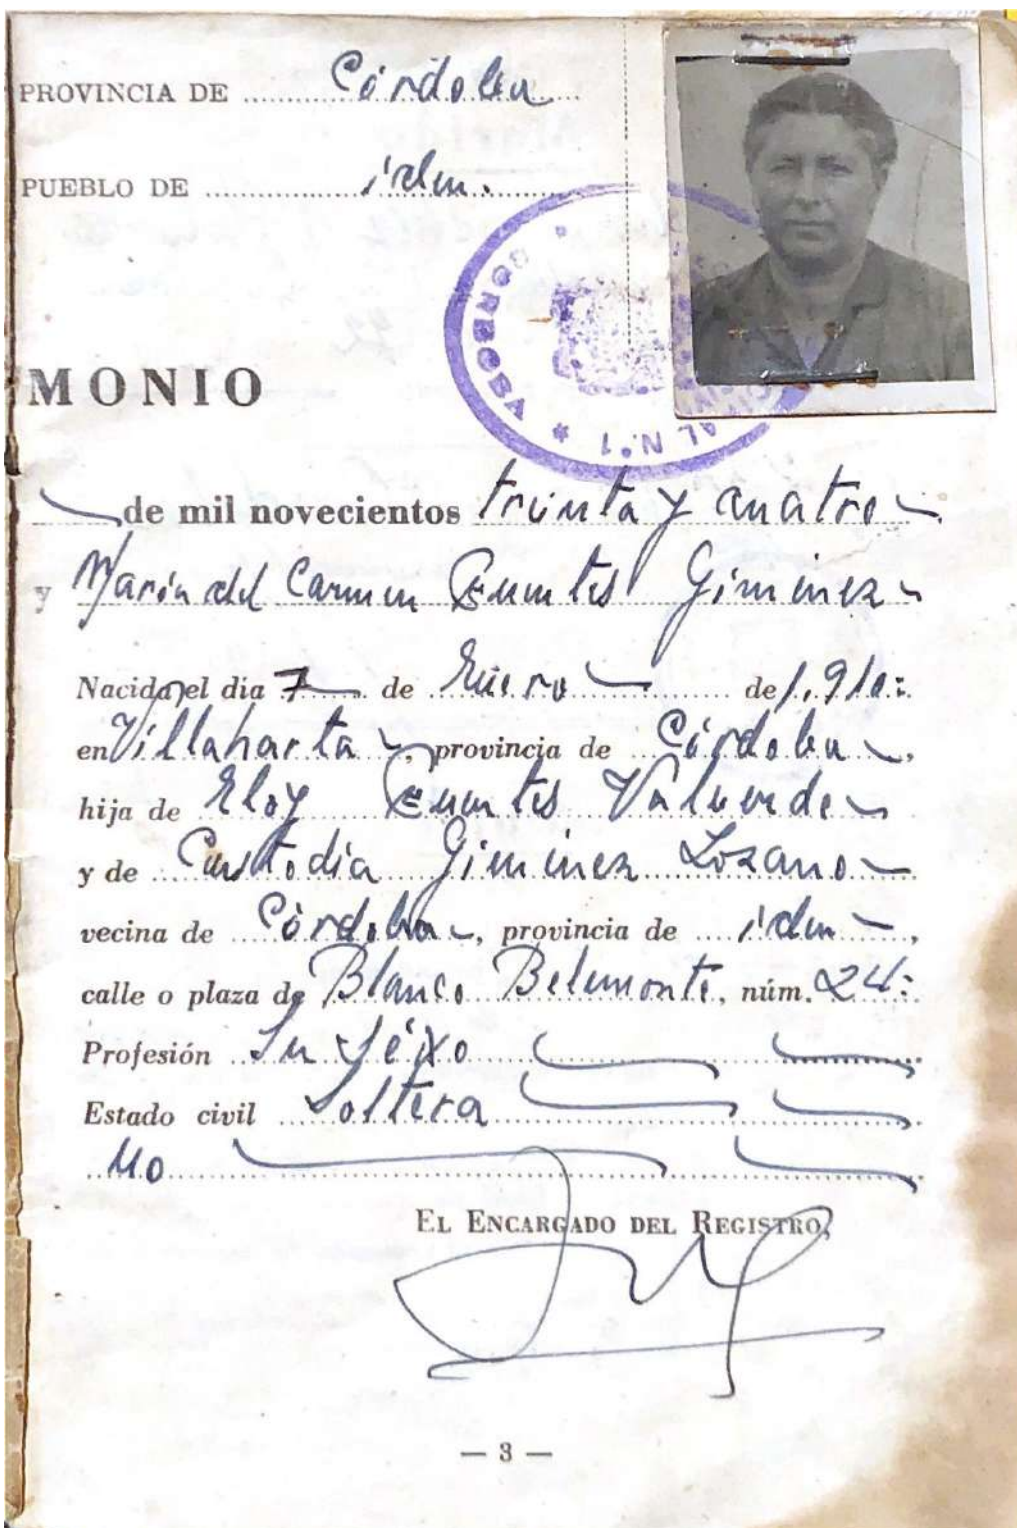 PROVINCIA DE Córdoba
PUEBLO DE idem.
MONIO
CORDOBA * AL N.º 1
de mil novecientos treinta y cuatro
y María del Carmen Fuentes Giménez
Nacida el dia 7 de Enero de 1.910=
en Villaharta, provincia de Córdoba,
hija de Eloy Fuentes Valverde
y de Custodia Giménez Lozano
vecina de Córdoba, provincia de idem,
calle o plaza de Blanco Belmonte, núm. 24=
Profesión Su séxo
Estado civil Soltera
no
EL ENCARGADO DEL REGISTRO,
— 3 —